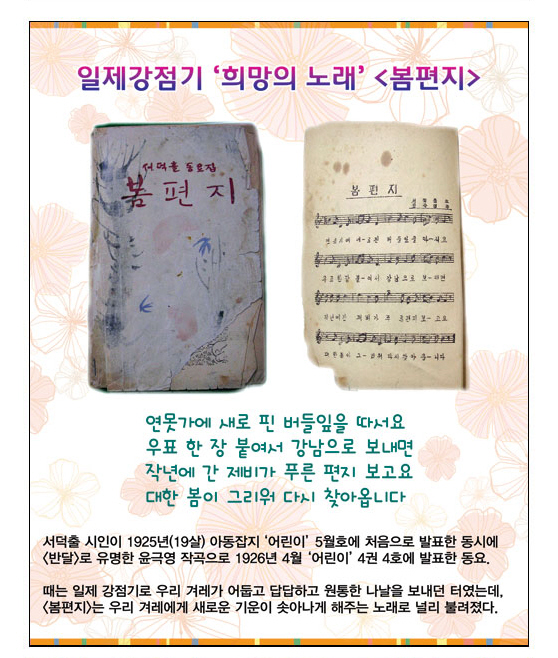 일제강점기 ‘희망의 노래’ <봄편지>
서덕출 동요집
봄 편 지
봄 편 지
연못가에 새로 핀 버들잎을 따서요
우표 한 장 붙여서 강남으로 보내면
작년에 간 제비가 푸른 편지 보고요
대한 봄이 그리워 다시 찾아옵니다
서덕출 시인이 1925년(19살) 아동잡지 ‘어린이’ 5월호에 처음으로 발표한 동시에
<반달>로 유명한 윤극영 작곡으로 1926년 4월 ‘어린이’ 4권 4호에 발표한 동요.
때는 일제 강점기로 우리 겨레가 어둡고 답답하고 원통한 나날을 보내던 터였는데,
<봄편지>는 우리 겨레에게 새로운 기운이 솟아나게 해주는 노래로 널리 불려졌다.